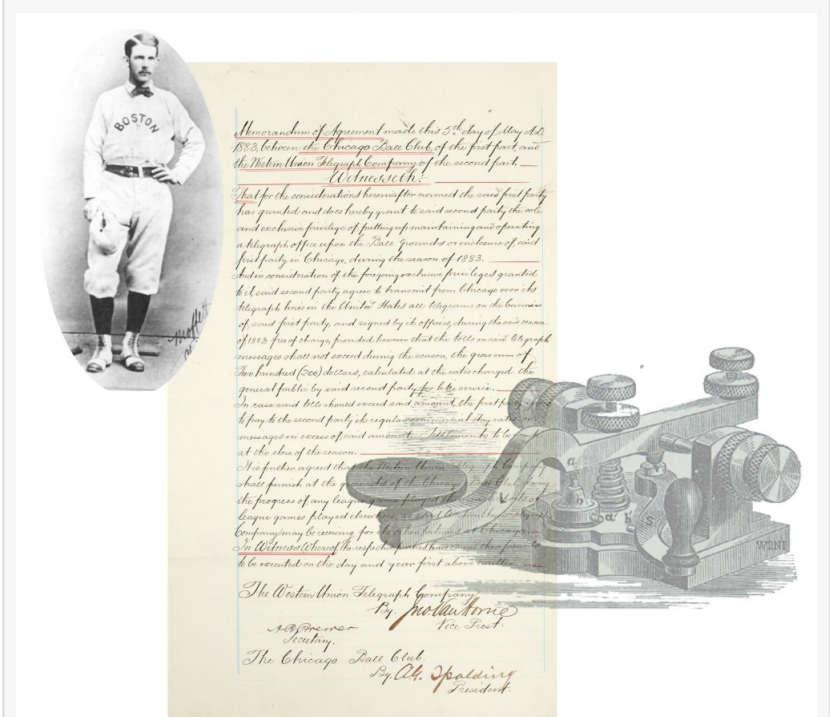 BOSTON
Memorandum of Agreement made this 5th day of May A.D.
1883, between the Chicago Ball Club, of the first part, and
the Western Union Telegraph Company of the second part.
Witnesseth:
That for the considerations hereinafter named the said first party
has granted and does hereby grant to said second party the sole
and exclusive privilege of putting up maintaining and operating
a telegraph office upon the Ball Grounds or enclosure of said
first party in Chicago, during the season of 1883.
And in consideration of the foregoing exclusive privileges granted
to it, said second party agrees to transmit from Chicago over its
telegraph lines in the United States all telegrams on the business
of, said first party, and signed by its officers, during the said season
of 1883 free of charge, provided however that the tolls on said telegraph
messages shall not exceed during the season, the gross sum of
Two hundred (200) dollars, calculated at the rates charged the
general public by said second party for like service.
In case said tolls should exceed said amount, the first party is
to pay to the second party its regular commercial day rates on
messages in excess of said amount. Settlement to be
at the close of the season.
It is further agreed that the Western Union Telegraph Company
shall furnish at the of the Chicago Ball Club
the progress of any league game played
league games played elsewhere
Company may be receiving for its at Chicago
In Witness Whereof the respective parties have caused these
to be executed on the day and year first above written.
The Western Union Telegraph Company
By Jno Van Horne
Vice Prest.
Secretary.
The Chicago Ball Club.
By, A.G. Spalding
President.
a
b
S